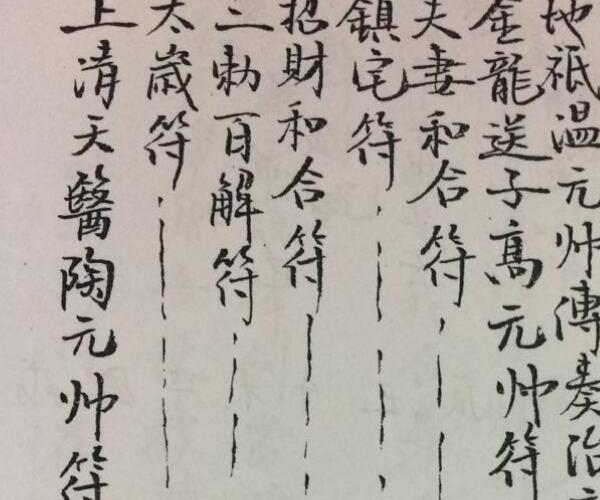 地祇温元帅傳奏治
金龍送子高元帅符
夫妻和合符
鎮宅符
招財和合符
三勅百解符
太歲符
上清天醫陶元帅符